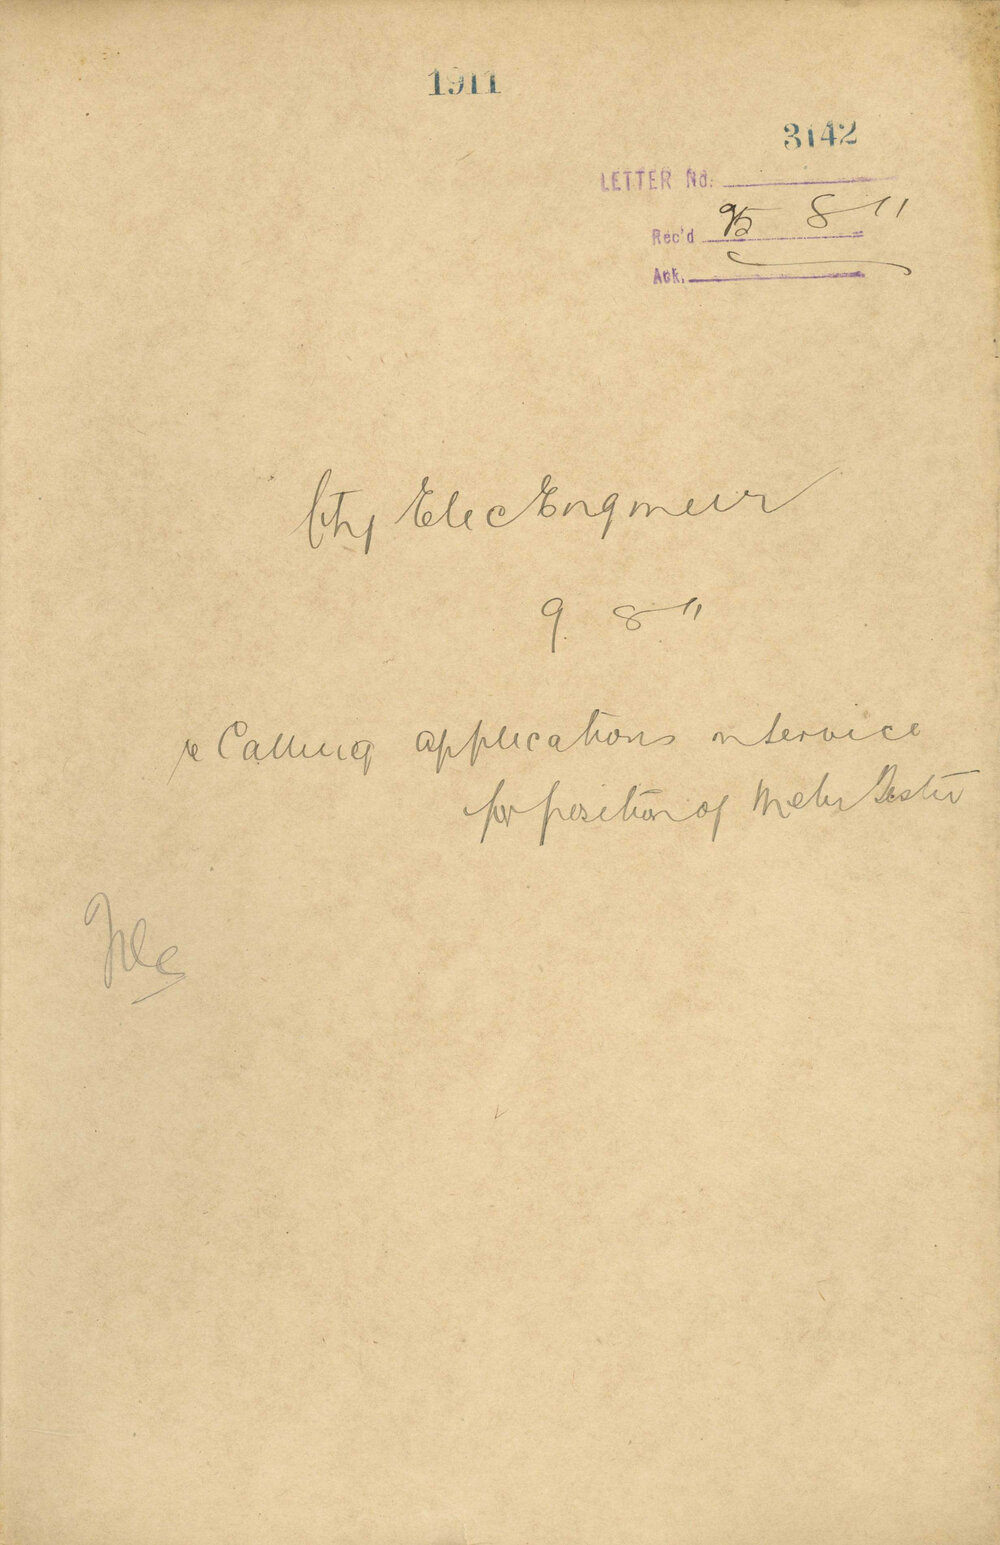 1911
3142
LETTER No.
Rec'd 8 11
Ack.
City Elec Engineer
9. 8 11
re Calling applications in service
for position of Meter Tester
File